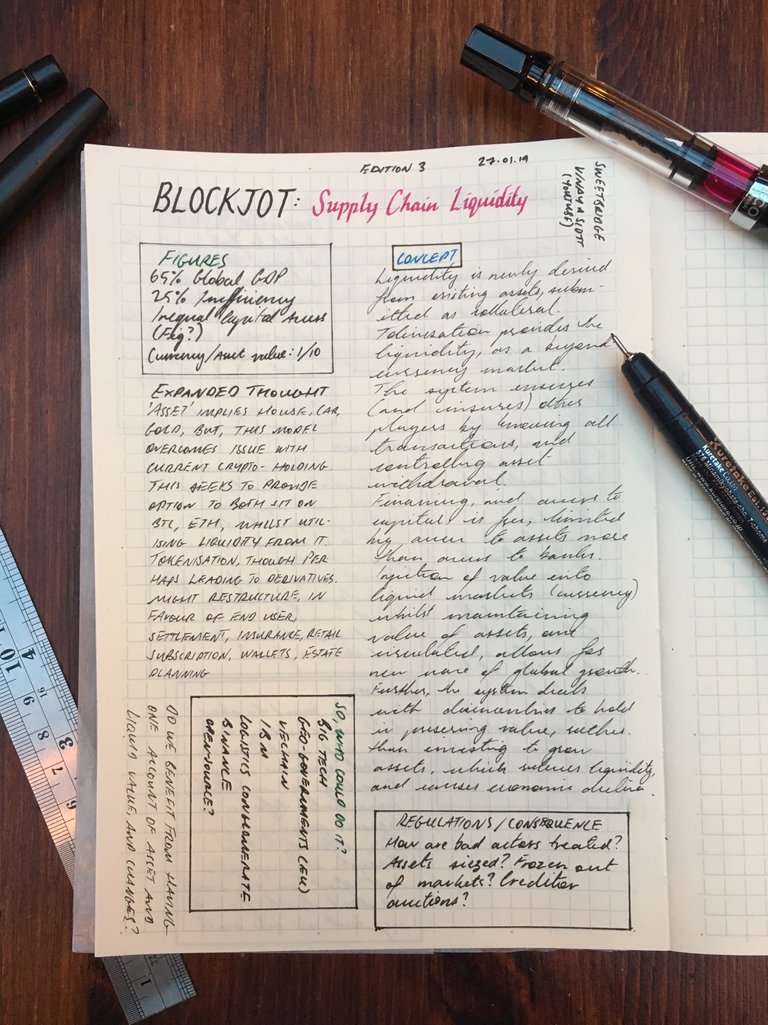 EDITION 3
27.01.19
BLOCKJOT: Supply Chain Liquidity
SWEETBRIDGE
VINAY & SCOTT
(YOUTUBE)
FIGURES
65% Global GDP
25% Inefficiency
Inequal Capital Access
(Fig?)
Currency/Asset value: 1/10
EXPANDED THOUGHT
'ASSET' IMPLIES HOUSE, CAR,
GOLD, BUT, THIS MODEL
OVERCOMES ISSUE WITH
CURRENT CRYPTO-HOLDING.
THIS SEEKS TO PROVIDE
OPTION TO BOTH SIT ON
BTC, ETH, WHILST UTIL-
ISING LIQUIDITY FROM IT.
TOKENISATION, THOUGH PER
HAPS LEADING TO DERIVATIVES.
MIGHT RESTRUCTURE, IN
FAVOUR OF END USER,
SETTLEMENT, INSURANCE, RETAIL
SUBSCRIPTION, WALLETS, ESTATE
PLANNING
SO, WHO COULD DO IT?
BIG TECH
GEO-GOVERNMENTS (EU)
VECHAIN
IBM
LOGISTICS CONGLOMERATE
BINANCE
OPEN-SOURCE?
DO WE BENEFIT FROM HAVING
ONE ACCOUNT OF ASSET AND
LIQUID VALUE, AND CHANGES?
CONCEPT
Liquidity is newly derived
from existing assets, subm-
itted as collateral.
Tokenisation provides the
liquidity, as a beyond
currency market.
The system ensures
(and insures) other
players by knowing all
transactions, and
controlling asset
withdrawal.
Financing, and access to
capital is fee, limited
by access to assets more
than access to banks.
Injection of value into
liquid markets (currency)
whilst maintaining
value of assets, and
circulated, allows for
new wave of global growth.
Further, the system deals
with disincentives to hold
in preserving value, rather
than investing to grow
assets, which reduces liquidity,
and causes economic decline.
REGULATIONS/CONSEQUENCE
How are bad actors treated?
Assets siezed? Frozen out
of markets? Creditor
auctions?
Kuretake
10
9
8
7
4
3
1